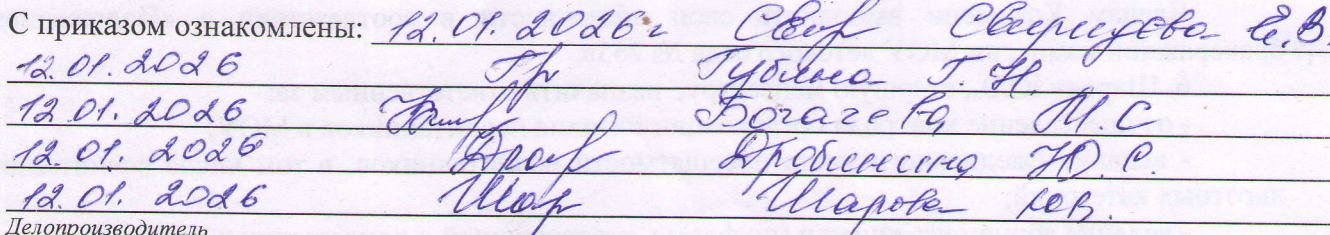 С приказом ознакомлены: 12.01.2026 г Свир Свиридова Е.В.
12.01.2026 Гу Губина Г.Н
12.01.2026 Богачева М.С
12.01.2026 Дроб Дробинина Ю.С.
12.01.2026 Шар Шарова Ю.В.
Делопроизводитель